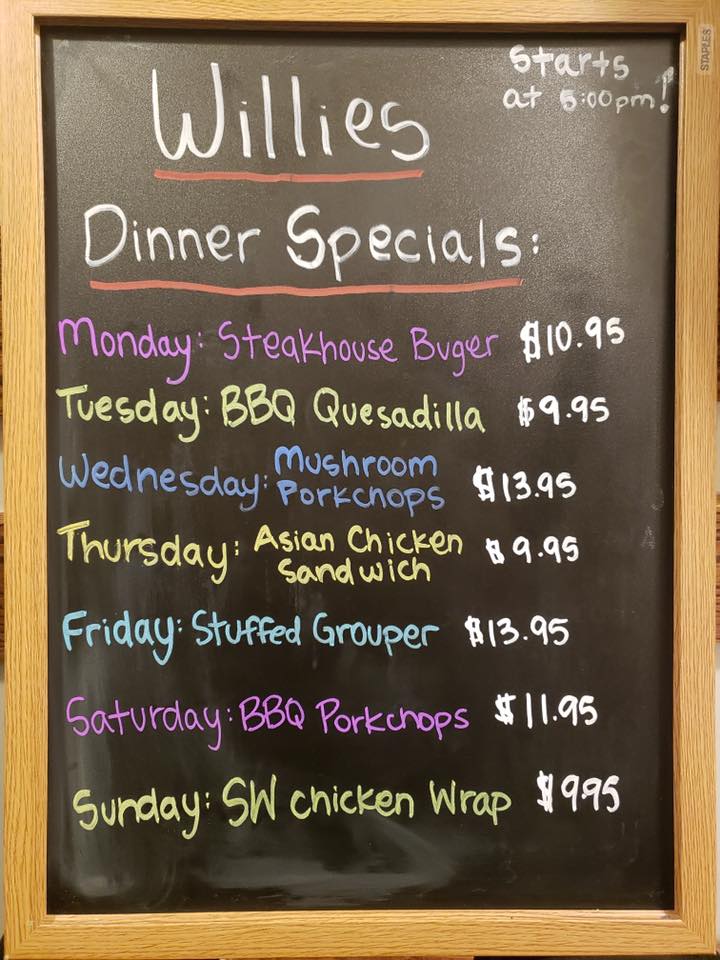 STAPLES
Starts
at 5:00pm!
Willies
Dinner Specials:
Monday: Steakhouse Buger $10.95
Tuesday: BBQ Quesadilla $9.95
Wednesday: Mushroom
Porkchops $13.95
Thursday: Asian Chicken
Sandwich $9.95
Friday: Stuffed Grouper $13.95
Saturday: BBQ Porkchops $11.95
Sunday: SW chicken Wrap $9.95